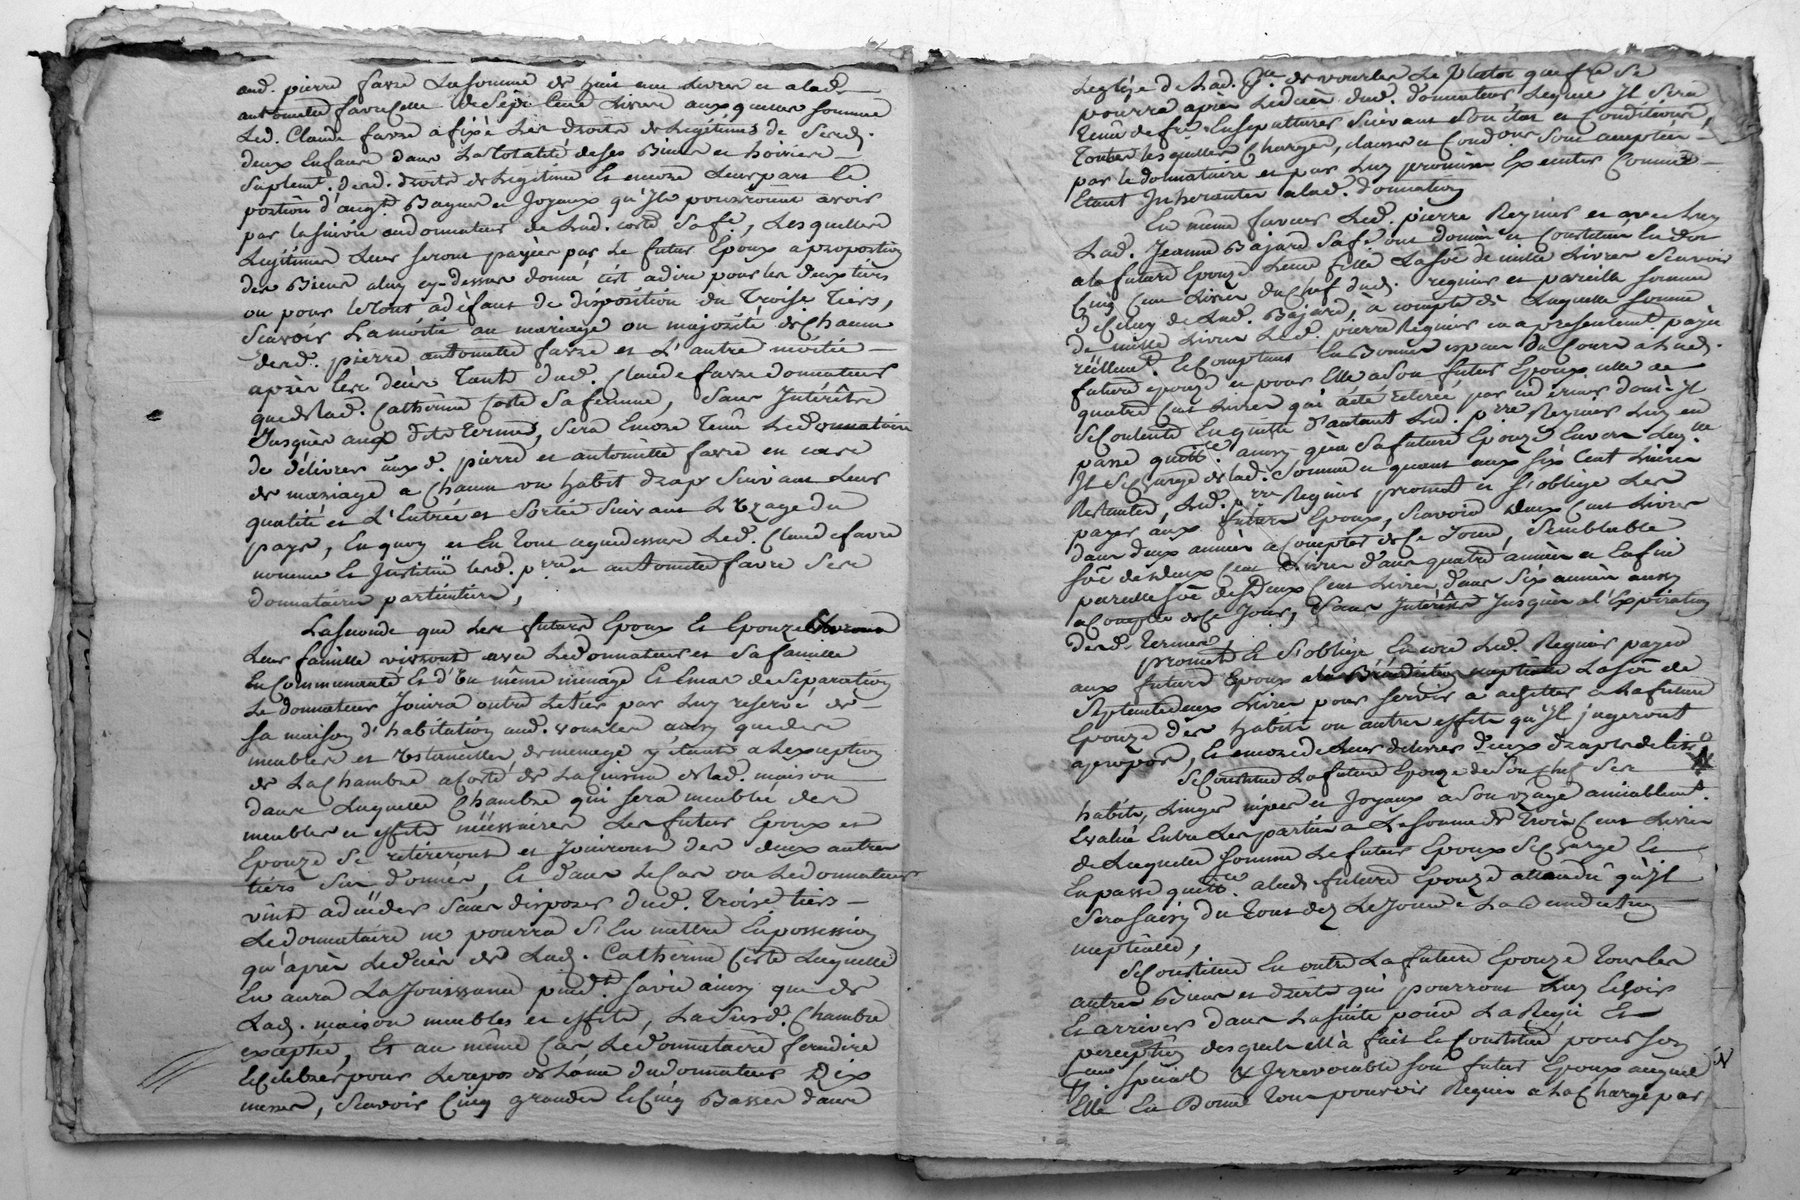 aud. pierre favre La somme de huit cent Livres et a lad.
antoinette favre celle de Sept Cent Livres auxquelles sommes
Led. Claude favre a fixé Les droits de Legitimes de Sesd.
deux Enfans dans La totalité de ses Biens et hoiries
Suplemt. desd. droits de Legitime Et encore Leur part Et
portion d'augt. Bagues et Joyaux qu'Ils pourroient avoir
par la Survie aud donnateur de Lad. coste Sa fe., Lesquelles
Legitimes Leur seront payées par Le futur Epoux a proportion
des Biens a luy cy-dessus donné c'est a dire pour les deux tiers
ou pour le tout a défaut de disposition du Troise. Tiers,
Scavoir La moitié au mariage ou majorité de Chacun
desd. pierre antoinette favre et L'autre moitié
après Les décès Tant dud. Claude favre donnateur
que de lad. Catherine Coste Sa femme, Sans Intérêts
Jusques aux dits termes, Sera Encore Tenu Le donnataire
de délivrer auxd. pierre et antoinette favre en cas
de mariage a Chacun un habit drap Suivant Leur
qualité et L'Entrée et Sortie Suivant L'Uzage du
pays, En quoy et En tout ce que dessus Led. Claude favre
nomme Et Institue lesd. pierre et antoinette favre Ses
donnataires particuliers,
La Seconde que Les futurs Epoux Et Epouze
Leur famille vivront avec Le donnateur et Sa famille
En Communauté Et d'Un même menage Et En cas de Séparation
Le donnateur Jouira outre Le tier par Luy reservé de
sa maison d'habitation aud. vourles ainsy que des
meubles et Ustancilles de menage y étant a L'exception
de La Chambre a Coté de La Cuisine de lad. maison
dans Laquelle Chambre qui sera meublée des
meubles et effets nécessaires Les futur Epoux et
Epouze Se retireront et Jouiront des deux autres
tiers Sus donnés, Et dans Le Cas ou Le donnateur
vint a décéder Sans disposer dud. Troise. tiers
Le donnataire ne pourra S'En mettre En possession
qu'après Le décès de Lad. Catherine Coste Laquelle
En aura La Jouissance pendt. Sa vie ainsy que de
Lad. maison meubles et effets, La Susd. Chambre
exceptée, Et au même Cas Le donnataire fera dire
Et Célébrer pour Le repos de L'ame du donnateur Dix
messes, Scavoir Cinq grandes Et Cinq Basses dans
L'eglize de Lad. de vourles Le plutot que fre Se
pourra après Le décès dud. donnateur Lequel Il Sera
Tenu de fre. Ensepulturer Suivant Son état et Condition,
Toutes lesquelles Charges, clauses et Condons Sont acceptées
par le donnataire et par Luy promises Executer Comme
Etant Inherentes a lad. donnation
En même faveur Led. pierre Regnier et avec Luy
Lad. Jeanne Bajard Sa fe. ont donné et Constitué En dot
a la future Epouze Leur fille La Soe. de mille Livres Scavoir
Cinq Cent Livres du Chef dud. regnier et pareille somme
de Celuy de Lad. Bajard, à compte de Laquelle somme
de mille Livres Led. pierre Regnier en a presentemt. payé
réellemt. Et Comptant En Bonnes espèces du Cours a Lad.
future epouze et pour Elle a Son futur Epoux celle de
quatre Cent Livres qui a été retirée par ce dernier dont Il
Se Contente En quitte d'autant Led. pierre Regnier Luy en
passe quitte. ainsy qu'a Sa future Epouze Envers Luy
Il Se Charge de lad. Somme et quant aux Six Cent Livres
Restantes, Led. pierre Regnier promet et S'oblige Les
payer aux futurs Epoux, Scavoir Deux Cent Livres
dans deux années a Compter de Ce Jour, Semblable
soe. de Deux Cent Livres dans quatre années et Enfin
pareille soe. de Deux Cent Livres dans Six années aussy
a Compter de Ce Jour, Sans Intérêts Jusques a L'Expiration
desd. Termes,
promet Et S'oblige Encore Led. Regnier payer
aux futurs Epoux a la Bénédiction nuptiale La soe. de
Septante deux Livres pour Servir a achetter a La future
Epouze des habits ou autres effets qu'Il jugeront
a propos, Et encore de Leur delivrer deux draps de lits
Se Constitue La future Epouze de Son Chef Ses
habits, Linges nipes et Joyaux a Son Uzage amiablemt.
Evalué Entre Les parties a La Somme de Trois Cent Livres
de Laquelle Somme Le futur Epoux Se Charge Et
En passe quitt. a lad. future Epouze attendû qu'Il
Sera Saisy du tout dez Le Jour de La Bénédiction
nuptialle,
Se Constitue En outre La future Epouze Tous Les
autres Biens et droits qui pourront Luy Echoir
Et arriver dans La Suite pour La Régie Et
perception desquels Ell'a fait Et Constitué pour Son
spécial & Irrevocable Son futur Epoux auquel
Elle En Donne Tous pouvoir Requis a La Charge par